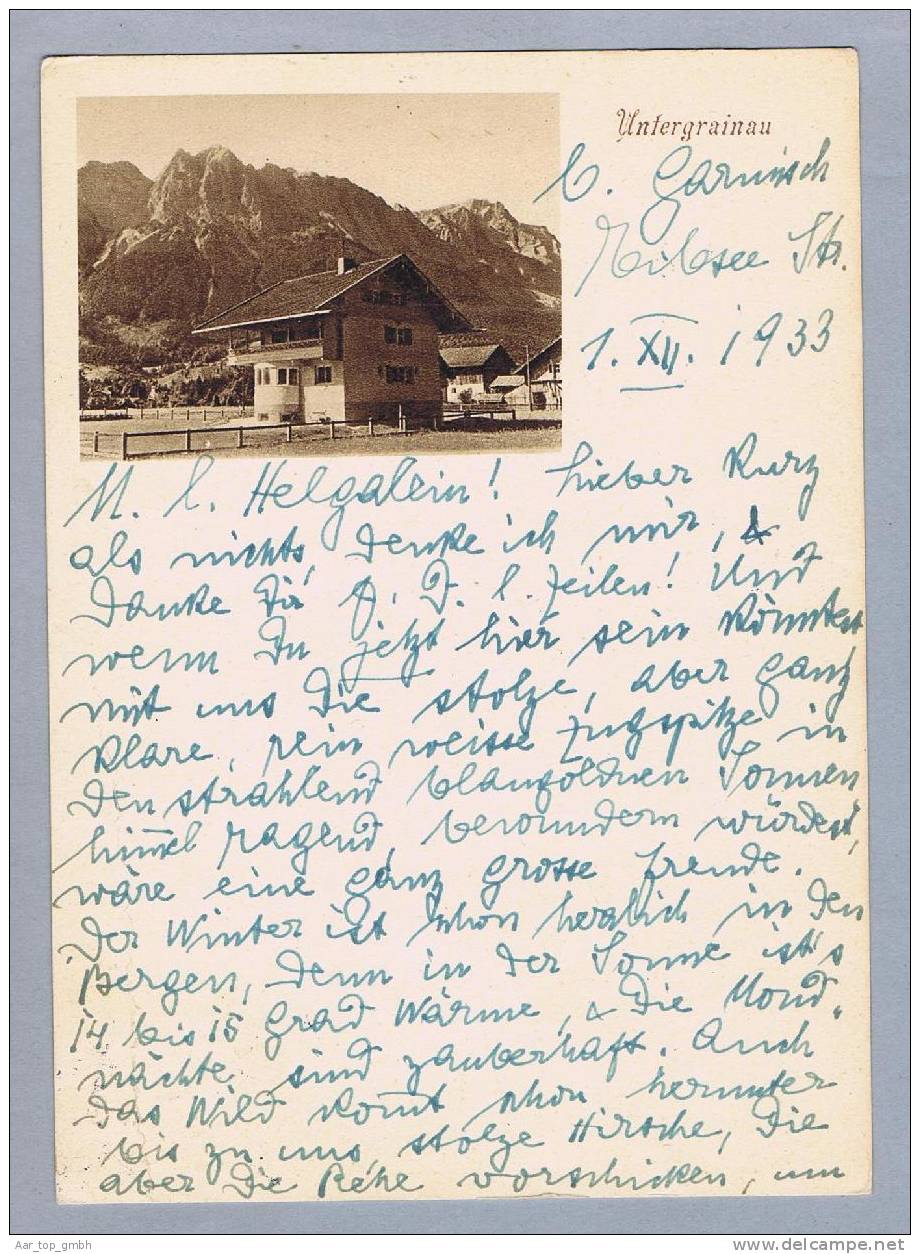 Untergrainau
b. Garmisch
Eibsee Str.
1. XII. 1933
M. l. Helgalein! Lieber kurz
als nichts, denke ich mir, &
danke Dir f. D. l. Zeilen! Und
wenn Du jetzt hier sein könntest
mit uns die stolze, aber ganz
klare, rein weisse Zugspitze in
den strahlend blaugoldnen Sonnen
himmel ragend, bewundern würdest,
wäre eine ganz grosse Freude.
Der Winter ist schon herrlich in den
Bergen, denn in der Sonne ist's
14 bis 15 Grad Wärme, & die Mond„
nächte sind zauberhaft. Auch
das Wild kommt schon herunter
bis zu uns, stolze Hirsche, die
aber die Rehe vorschicken, um
Aar_top_gmbh
www.delcampe.net